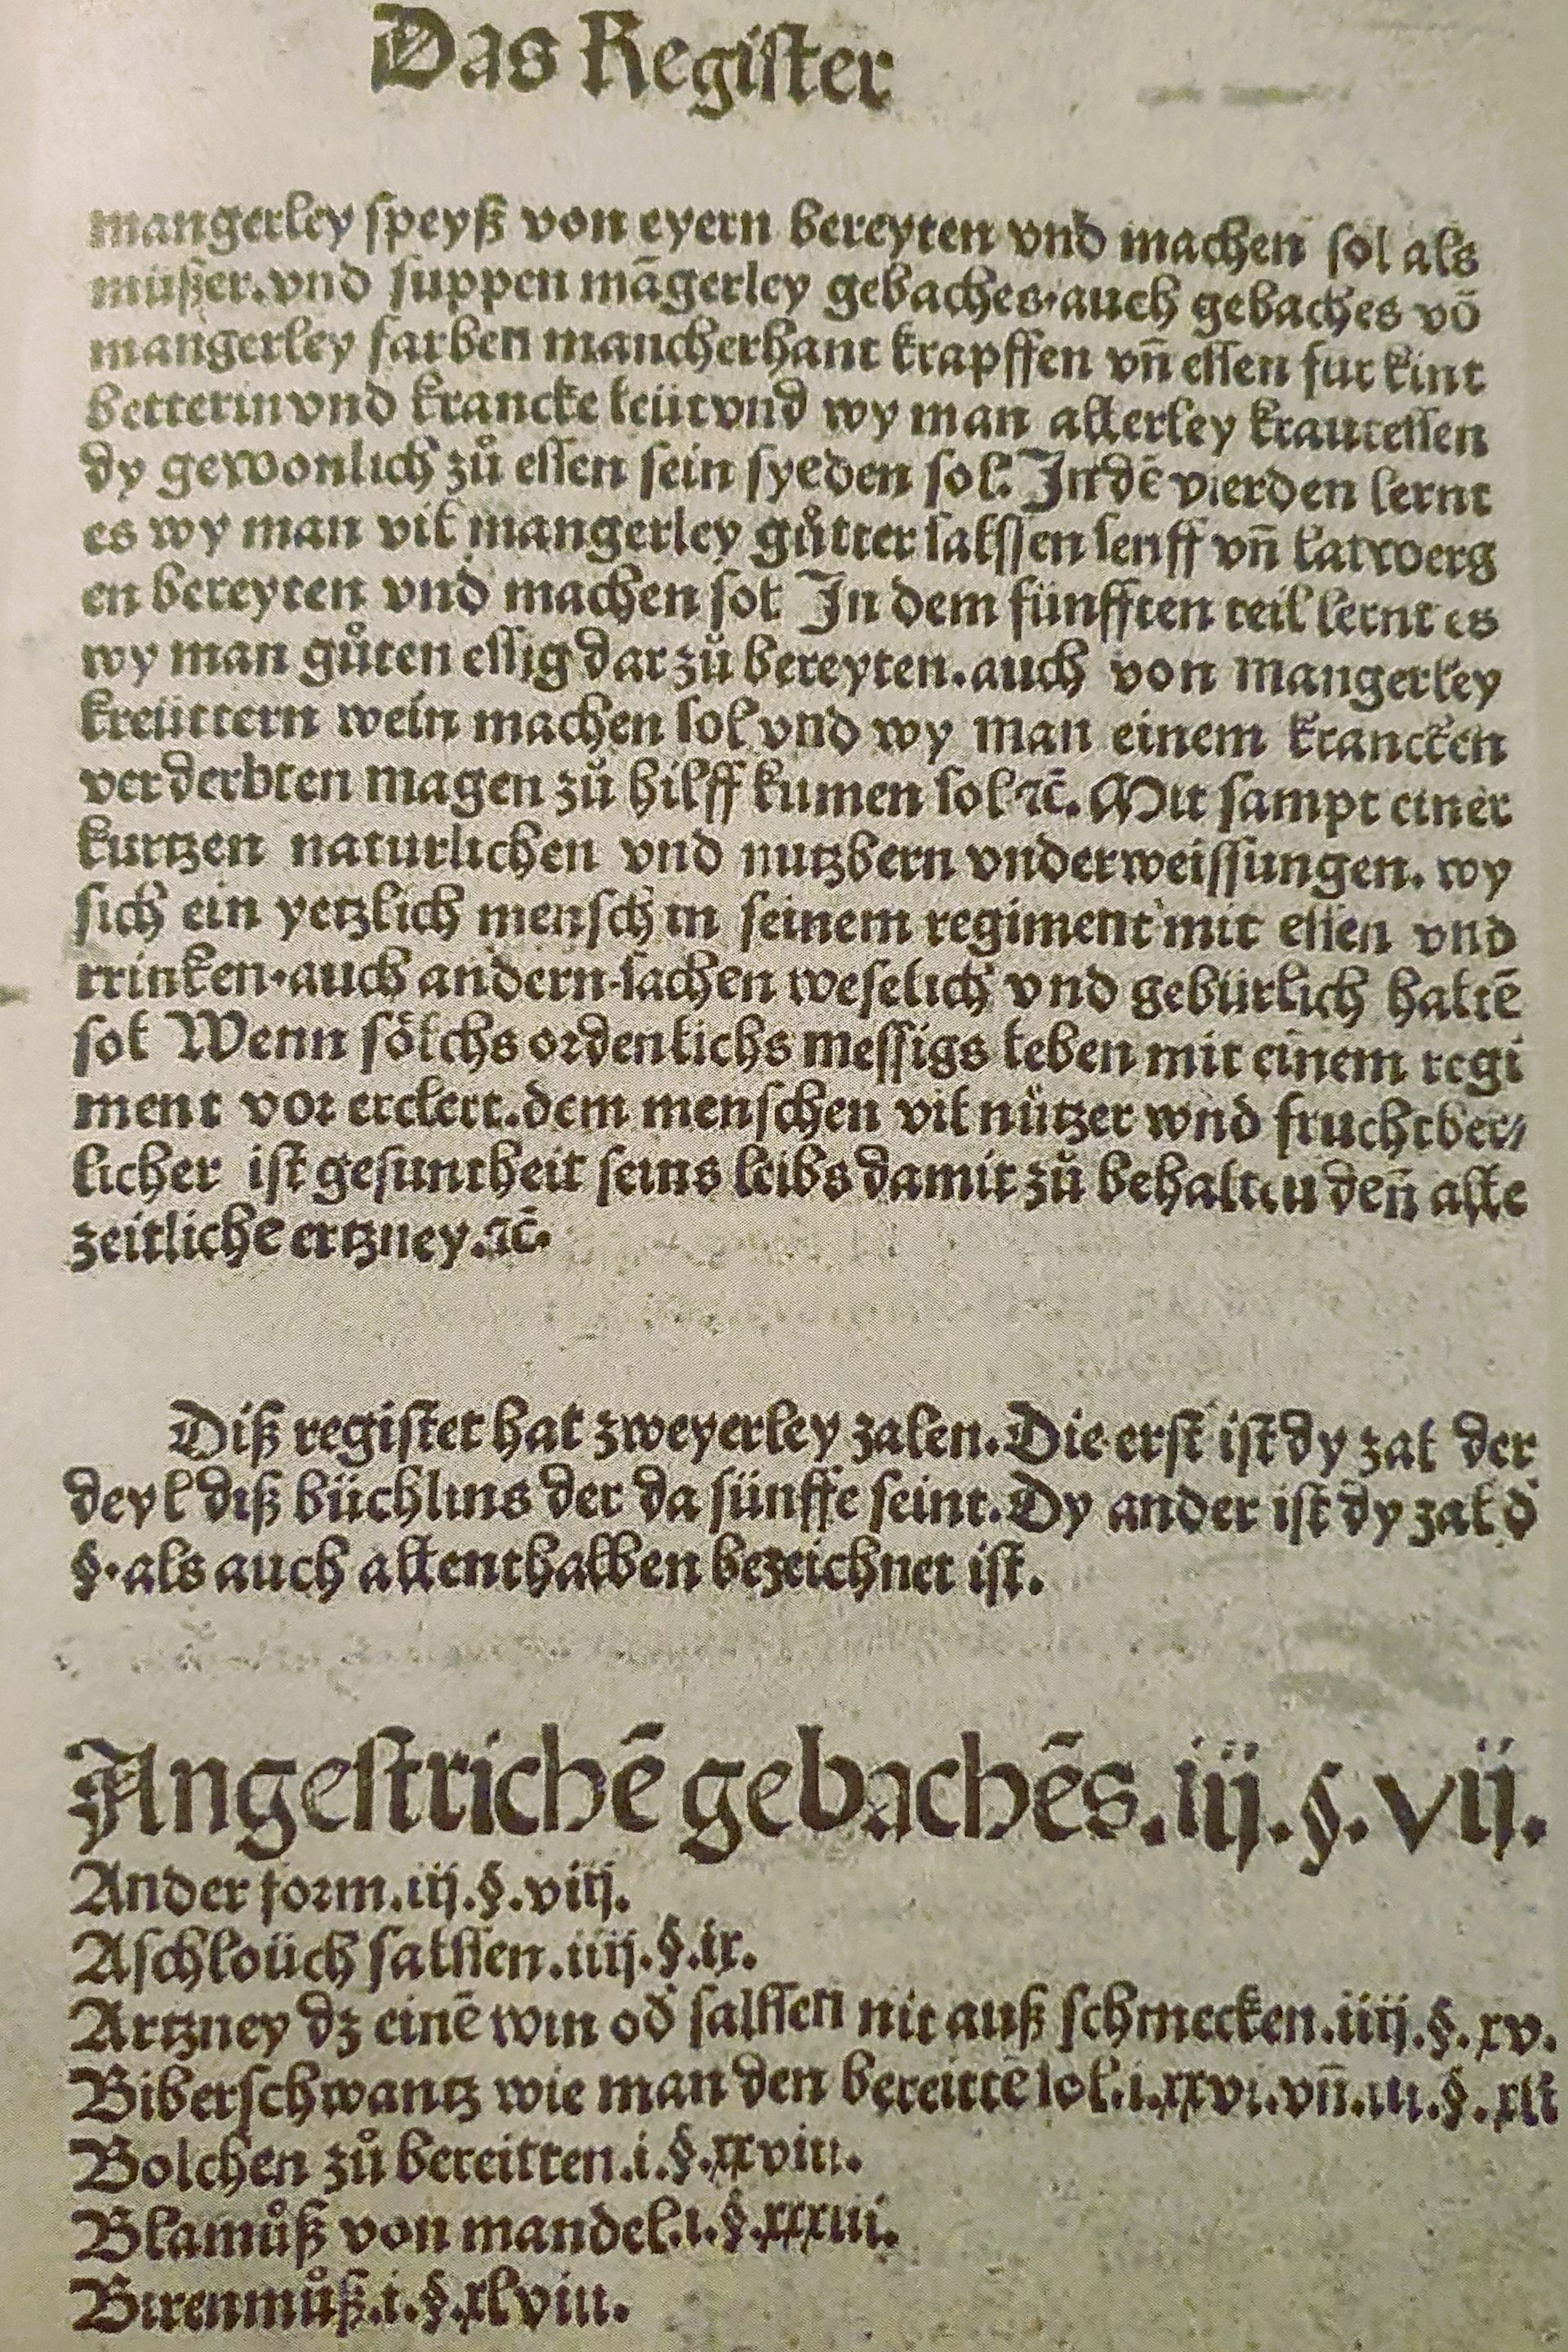 Das Register
mangerley speyß von eyern bereyten vnd machen sol als
müßer.vnd suppen māgerley gebaches.auch gebaches vō
mangerley farben mancherhant krapffen vn̄ essen fur kint
betterin vnd krancke leüt vnd wy man allerley krautessen
dy gewonlich zů essen sein syeden sol. In dē vierden lernt
es wy man vil mangerley gůtter salssen senff vn̄ latwerg
en bereyten vnd machen sol In dem fünfften teil lernt es
wy man gůten essig dar zů bereyten.auch von mangerley
kreüttern wein machen sol vnd wy man einem krancken
verderbten magen zů hilff kumen sol ⁊c̄. Mit sampt einer
kurtzen naturlichen vnd nutzbern vnderweissungen. wy
sich ein yetzlich mensch in seinem regiment mit essen vnd
trinken.auch andern sachen weselich vnd gebürlich haltē
sol Wenn sölchs ordenlichs messigs leben mit einem regi
ment vor erclert.dem menschen vil nützer wnd fruchtber⸗
licher ist gesuntheit seins leibs damit zů behalten den̄ alle
zeitliche ertzney.⁊c̄.
Diß register hat zweyerley zalen.Die erst ist dy zal der
deyl diß büchlins der da fünffe seint.Dy ander ist dy zal d̛
§.als auch allenthalben bezeichnet ist.
Angestrichē gebachēs.iij.§.vij.
Ander form.iij.§.viij.
Aschloüch salssen.iiij.§.ix.
Artzney dz einē win od̛ salssen nit auß schmecken.iiij.§.xv.
Biberschwantz wie man den bereittē sol.i.xxvi.vn̄.iii.§.xli
Bolchen zů bereitten.i.§.xxviii.
Blamůß von mandel.i.§.xxxiii.
Birenmůß.i.§.xlviii.